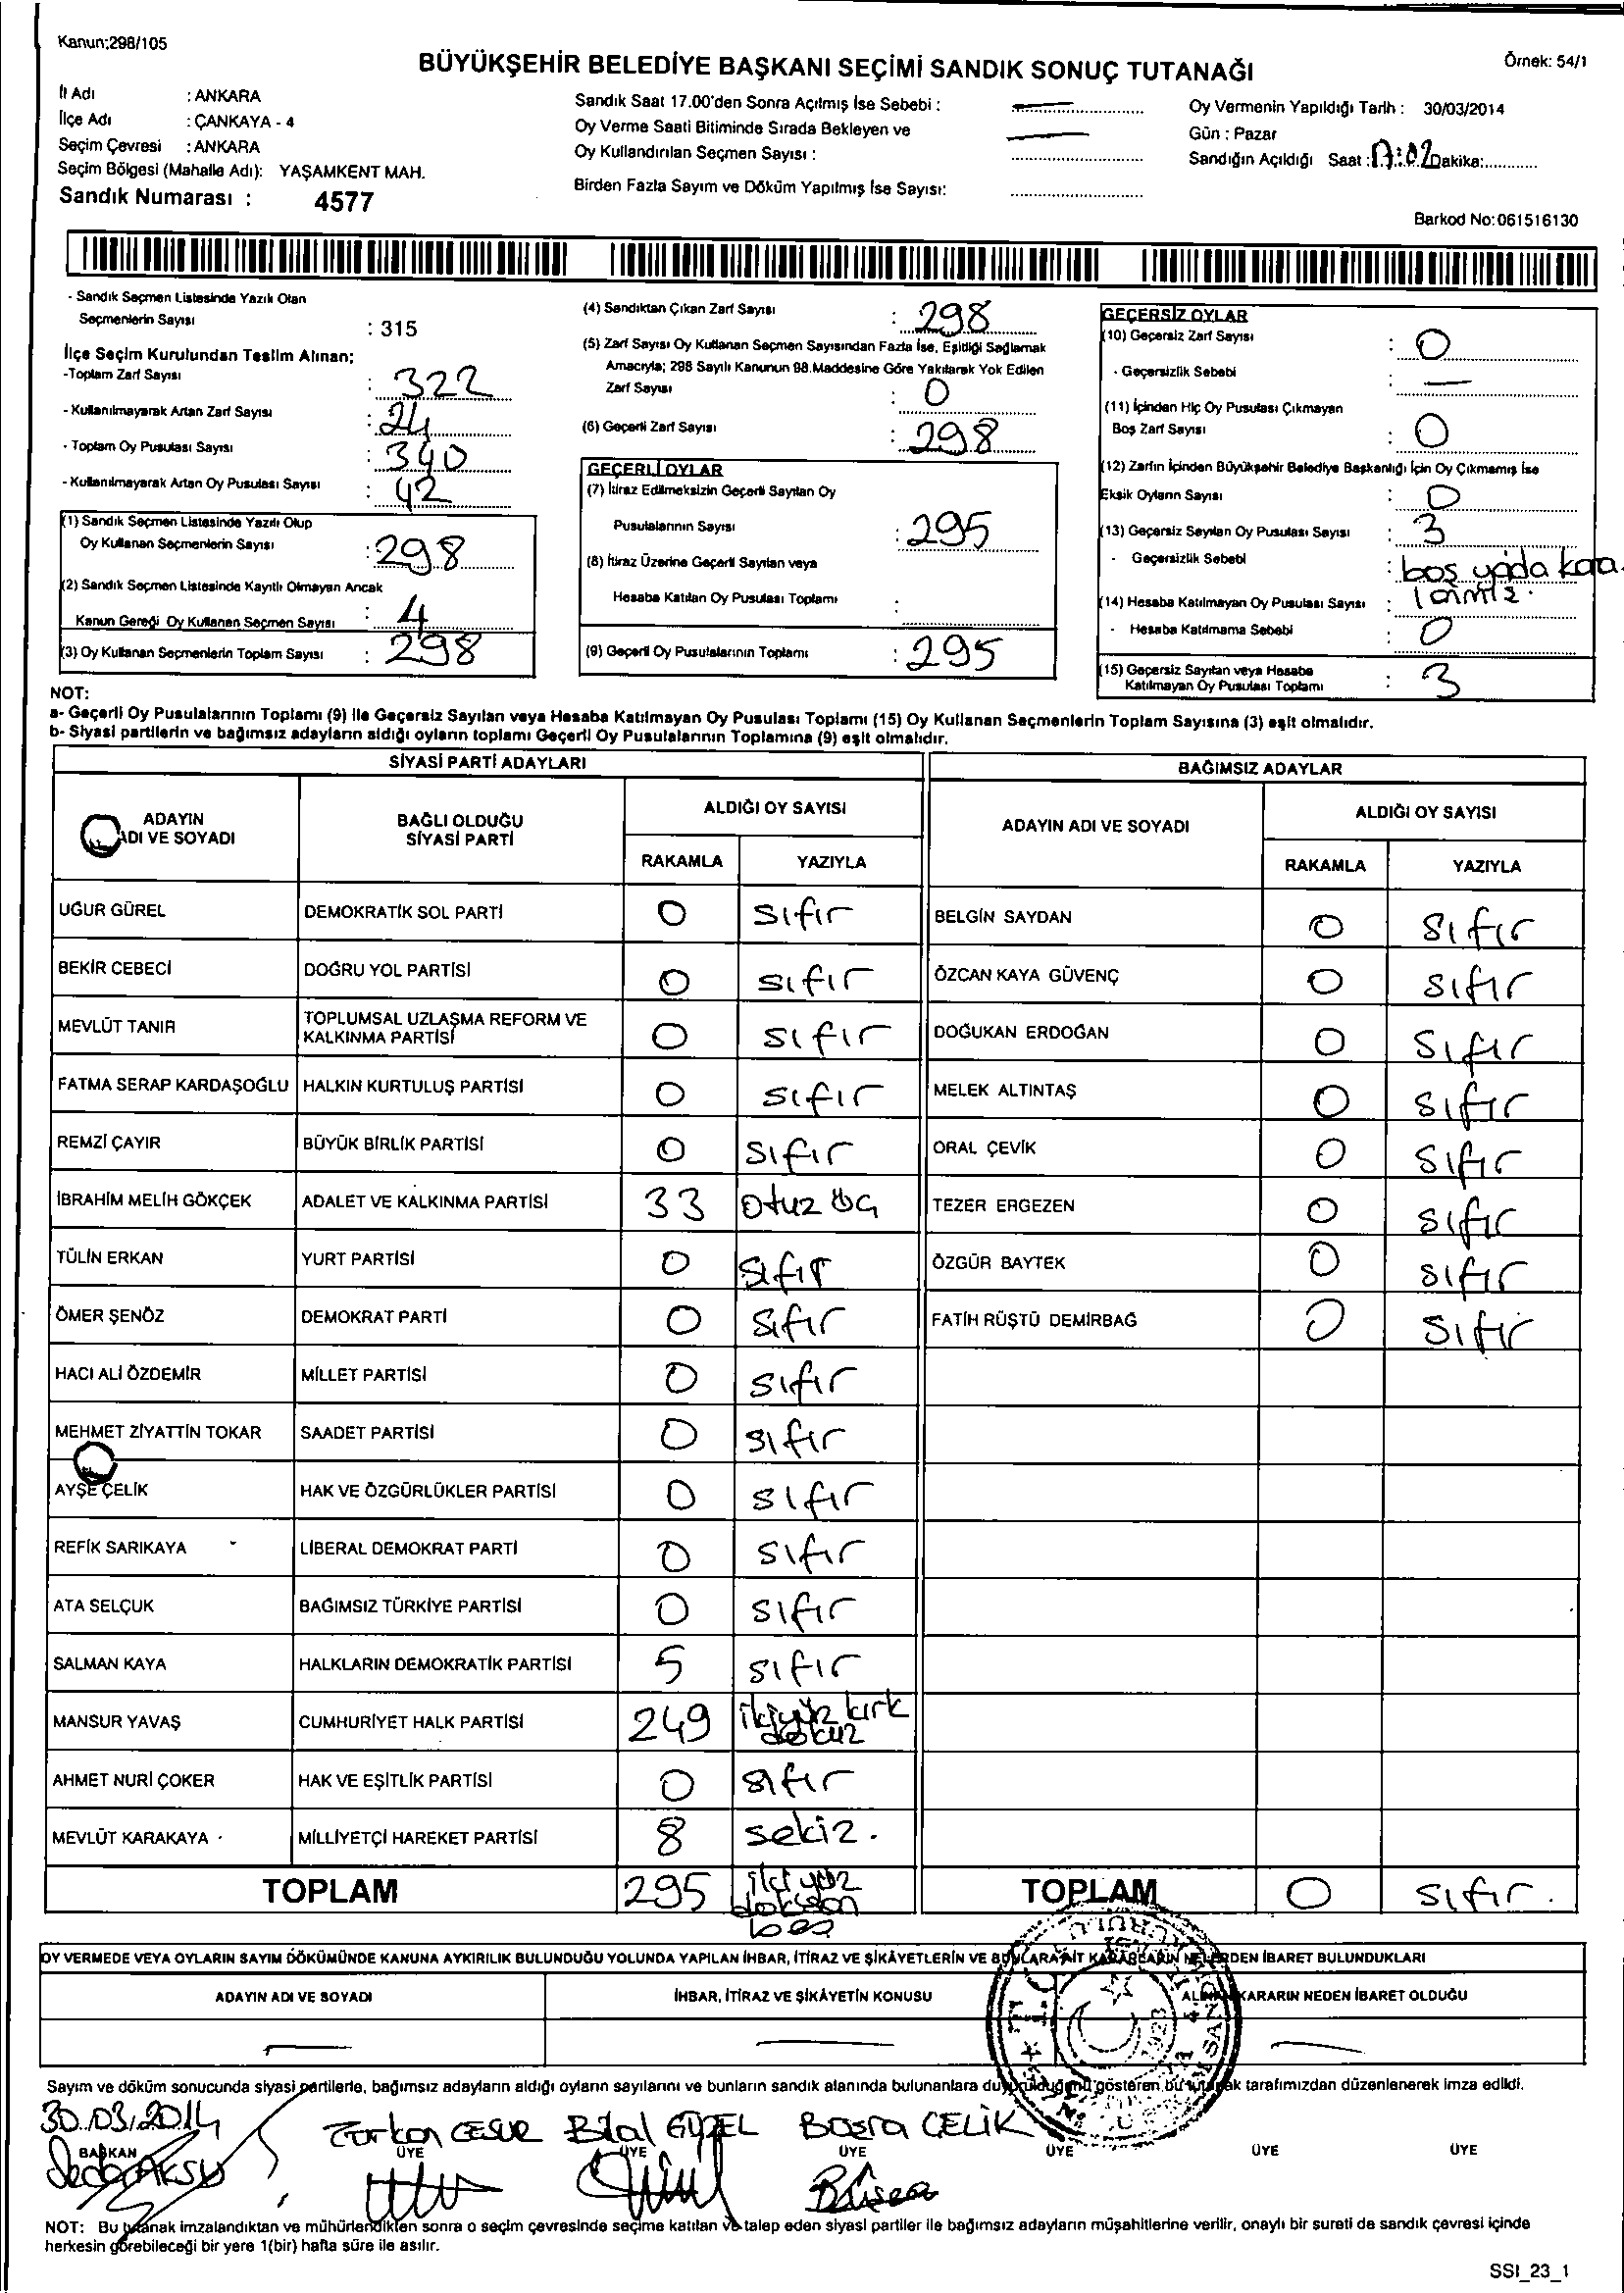 Kanun;298/105
Örnek: 54/1
BÜYÜKŞEHİR BELEDİYE BAŞKANI SEÇİMİ SANDIK SONUÇ TUTANAĞI
İl Adı : ANKARA
İlçe Adı : ÇANKAYA - 4
Seçim Çevresi : ANKARA
Seçim Bölgesi (Mahalle Adı): YAŞAMKENT MAH.
Sandık Numarası : 4577
Sandık Saat 17.00'den Sonra Açılmış İse Sebebi :
Oy Verme Saati Bitiminde Sırada Bekleyen ve
Oy Kullandırılan Seçmen Sayısı :
Birden Fazla Sayım ve Döküm Yapılmış İse Sayısı:
Oy Vermenin Yapıldığı Tarih : 30/03/2014
Gün : Pazar
Sandığın Açıldığı Saat : 17:02 Dakika:
Barkod No:061516130
- Sandık Seçmen Listesinde Yazılı Olan
Seçmenlerin Sayısı : 315
İlçe Seçim Kurulundan Teslim Alınan;
-Toplam Zarf Sayısı : 322
- Kullanılmayarak Artan Zarf Sayısı : 24
- Toplam Oy Pusulası Sayısı : 340
- Kullanılmayarak Artan Oy Pusulası Sayısı : 42
(1) Sandık Seçmen Listesinde Yazılı Olup
Oy Kullanan Seçmenlerin Sayısı : 298
(2) Sandık Seçmen Listesinde Kayıtlı Olmayan Ancak
Kanun Gereği Oy Kullanan Seçmen Sayısı : 4
(3) Oy Kullanan Seçmenlerin Toplam Sayısı : 298
(4) Sandıktan Çıkan Zarf Sayısı : 298
(5) Zarf Sayısı Oy Kullanan Seçmen Sayısından Fazla İse, Eşitliği Sağlamak
Amacıyla; 298 Sayılı Kanunun 98.Maddesine Göre Yakılarak Yok Edilen
Zarf Sayısı : 0
(6) Geçerli Zarf Sayısı : 298
GEÇERLİ OYLAR
(7) İtiraz Edilmeksizin Geçerli Sayılan Oy
Pusulalarının Sayısı : 295
(8) İtiraz Üzerine Geçerli Sayılan veya
Hesaba Katılan Oy Pusulası Toplamı :
(9) Geçerli Oy Pusulalarının Toplamı : 295
GEÇERSİZ OYLAR
(10) Geçersiz Zarf Sayısı : 0
- Geçersizlik Sebebi : —
(11) İçinden Hiç Oy Pusulası Çıkmayan
Boş Zarf Sayısı : 0
(12) Zarfın İçinden Büyükşehir Belediye Başkanlığı İçin Oy Çıkmamış İse
Eksik Oyların Sayısı : 0
(13) Geçersiz Sayılan Oy Pusulası Sayısı : 3
- Geçersizlik Sebebi : boş yada kara
(14) Hesaba Katılmayan Oy Pusulası Sayısı :
- Hesaba Katılmama Sebebi : 0
(15) Geçersiz Sayılan veya Hesaba
Katılmayan Oy Pusulası Toplamı : 3
NOT:
a- Geçerli Oy Pusulalarının Toplamı (9) ile Geçersiz Sayılan veya Hesaba Katılmayan Oy Pusulası Toplamı (15) Oy Kullanan Seçmenlerin Toplam Sayısına (3) eşit olmalıdır.
b- Siyasi partilerin ve bağımsız adayların aldığı oyların toplamı Geçerli Oy Pusulalarının Toplamına (9) eşit olmalıdır.
SİYASİ PARTİ ADAYLARI
ADAYIN ADI VE SOYADI
BAĞLI OLDUĞU SİYASİ PARTİ
ALDIĞI OY SAYISI
RAKAMLA YAZIYLA
UĞUR GÜREL DEMOKRATİK SOL PARTİ 0 sıfır
BEKİR CEBECİ DOĞRU YOL PARTİSİ 0 sıfır
MEVLÜT TANIR TOPLUMSAL UZLAŞMA REFORM VE KALKINMA PARTİSİ 0 sıfır
FATMA SERAP KARDAŞOĞLU HALKIN KURTULUŞ PARTİSİ 0 sıfır
REMZİ ÇAYIR BÜYÜK BİRLİK PARTİSİ 0 sıfır
İBRAHİM MELİH GÖKÇEK ADALET VE KALKINMA PARTİSİ 33 otuz üç
TÜLİN ERKAN YURT PARTİSİ 0 sıfır
ÖMER ŞENÖZ DEMOKRAT PARTİ 0 sıfır
HACI ALİ ÖZDEMİR MİLLET PARTİSİ 0 sıfır
MEHMET ZİYATTİN TOKAR SAADET PARTİSİ 0 sıfır
AYŞE ÇELİK HAK VE ÖZGÜRLÜKLER PARTİSİ 0 sıfır
REFİK SARIKAYA LİBERAL DEMOKRAT PARTİ 0 sıfır
ATA SELÇUK BAĞIMSIZ TÜRKİYE PARTİSİ 0 sıfır
SALMAN KAYA HALKLARIN DEMOKRATİK PARTİSİ 5 sıfır
MANSUR YAVAŞ CUMHURİYET HALK PARTİSİ 249 ikiyüz kırk dokuz
AHMET NURİ ÇOKER HAK VE EŞİTLİK PARTİSİ 0 sıfır
MEVLÜT KARAKAYA MİLLİYETÇİ HAREKET PARTİSİ 8 sekiz.
TOPLAM 295 ikiyüz doksan beş
BAĞIMSIZ ADAYLAR
ADAYIN ADI VE SOYADI
ALDIĞI OY SAYISI
RAKAMLA YAZIYLA
BELGİN SAYDAN 0 sıfır
ÖZCAN KAYA GÜVENÇ 0 sıfır
DOĞUKAN ERDOĞAN 0 sıfır
MELEK ALTINTAŞ 0 sıfır
ORAL ÇEVİK 0 sıfır
TEZER ERGEZEN 0 sıfır
ÖZGÜR BAYTEK 0 sıfır
FATİH RÜŞTÜ DEMİRBAĞ 0 sıfır
TOPLAM 0 sıfır.
OY VERMEDE VEYA OYLARIN SAYIM DÖKÜMÜNDE KANUNA AYKIRILIK BULUNDUĞU YOLUNDA YAPILAN İHBAR, İTİRAZ VE ŞİKÂYETLERİN VE BUNLARA AİT KARARLARIN NELERDEN İBARET BULUNDUKLARI
ADAYIN ADI VE SOYADI
İHBAR, İTİRAZ VE ŞİKÂYETİN KONUSU
ALINAN KARARIN NEDEN İBARET OLDUĞU
Sayım ve döküm sonucunda siyasi partilerle, bağımsız adayların aldığı oyların sayılarını ve bunların sandık alanında bulunanlara duyurulduğunu gösteren bu tutanak tarafımızdan düzenlenerek imza edildi.
30.03.2014
Türkan CESUR Bilal GÜZEL Büşra ÇELİK
BAŞKAN ÜYE ÜYE ÜYE ÜYE ÜYE ÜYE
AKSU
Büşra
NOT: Bu tutanak imzalandıktan ve mühürlendikten sonra o seçim çevresinde seçime katılan ve talep eden siyasi partiler ile bağımsız adayların müşahitlerine verilir, onaylı bir sureti de sandık çevresi içinde
herkesin görebileceği bir yere 1(bir) hafta süre ile asılır.
SSI_23_1